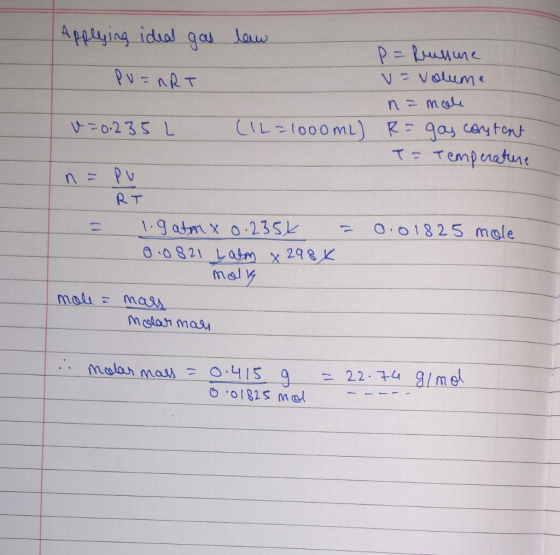 Applying ideal gas law
PV = nRT
P = Pressure
V = Volume
n = mole
R = gas constant
T = Temperature
V = 0.235 L (1L = 1000 mL)
n = PV
RT
= 1.9 atm x 0.235 L = 0.01825 mole
0.0821 L atm x 298 K
mol K
mole = mass
molar mass
∴ molar mass = 0.415 g = 22.74 g/mol
0.01825 mol